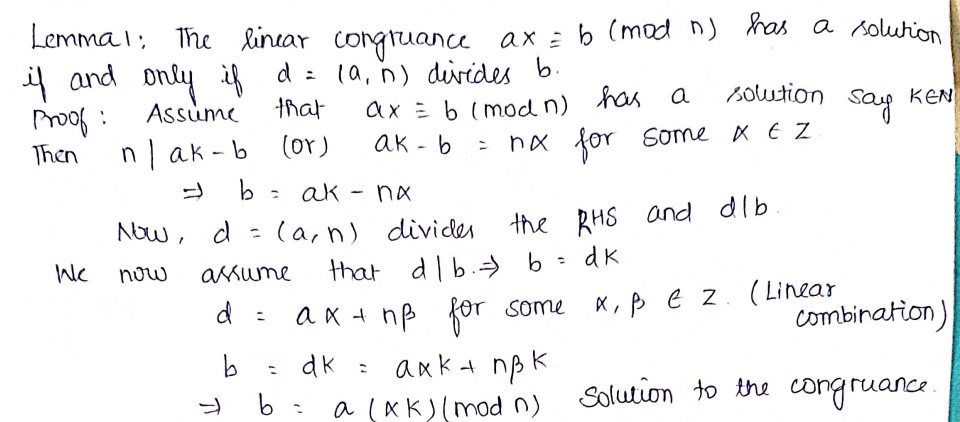 Lemma 1: The linear congruence ax ≡ b (mod n) has a solution
if and only if d = (a, n) divides b.
Proof: Assume that ax ≡ b (mod n) has a solution say K∈N
Then n | aK - b (or) aK - b = nα for some α ∈ Z.
⇒ b = aK - nα
Now, d = (a, n) divides the RHS and d|b.
We now assume that d|b. ⇒ b = dK
d = aα + nβ for some α, β ∈ Z. (Linear
combination)
b = dK = aαK + nβK
⇒ b = a (αK) (mod n) Solution to the congruance.